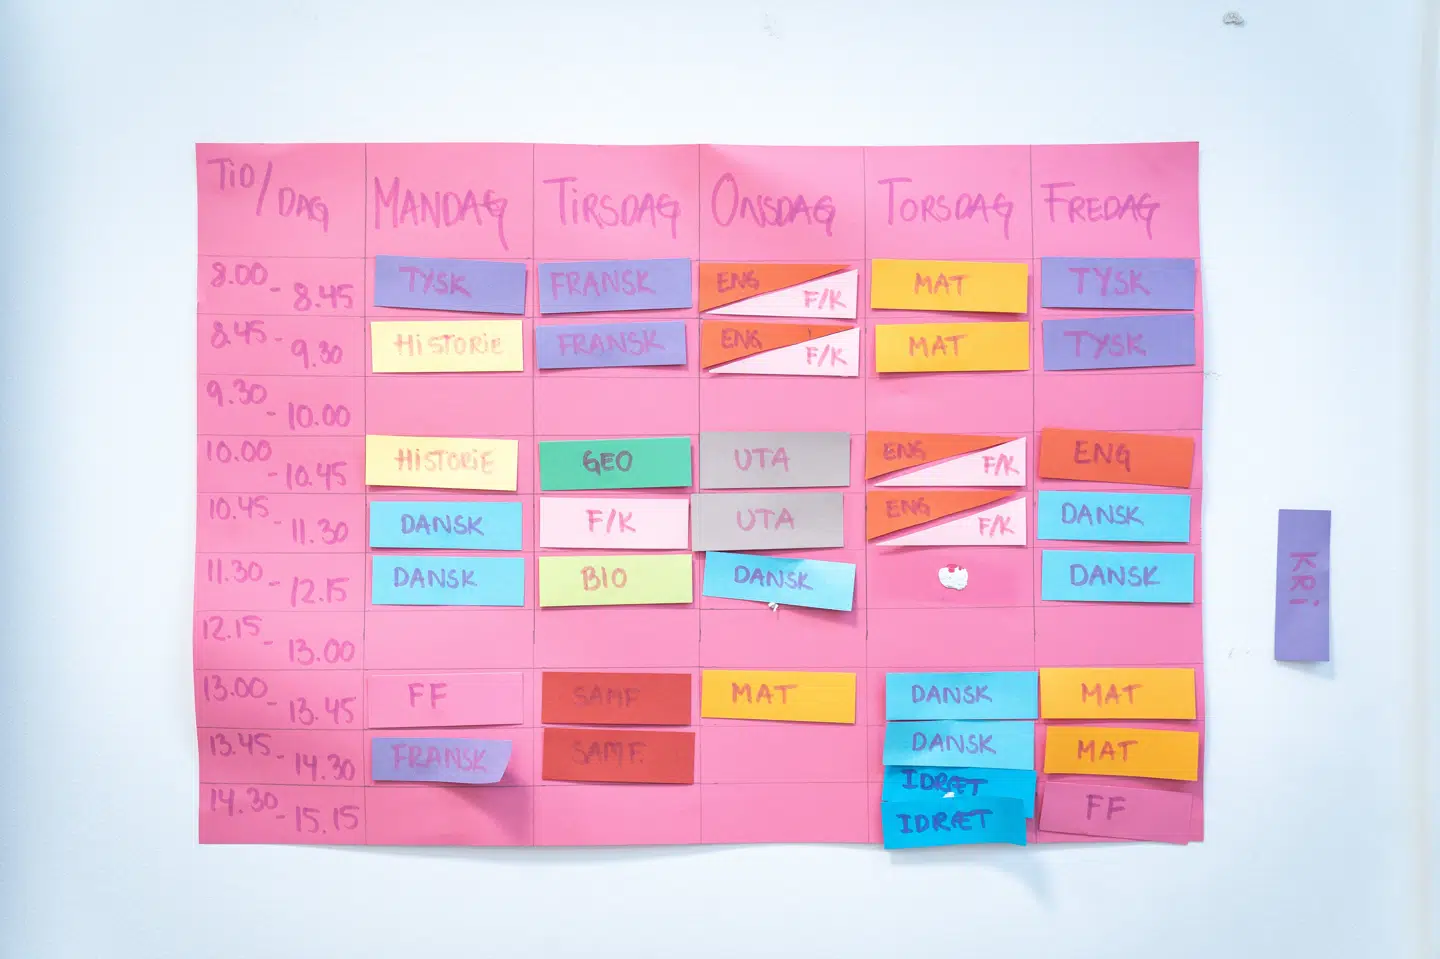 TID/DAG MANDAG TIRSDAG ONSDAG TORSDAG FREDAG
8.00 - 8.45 TYSK FRANSK ENG F/K MAT TYSK
8.45 - 9.30 HISTORIE FRANSK ENG F/K MAT TYSK
9.30 - 10.00
10.00 - 10.45 HISTORIE GEO UTA ENG F/K ENG
10.45 - 11.30 DANSK F/K UTA ENG F/K DANSK
11.30 - 12.15 DANSK BIO DANSK DANSK
12.15 - 13.00
13.00 - 13.45 FF SAMF MAT DANSK MAT
13.45 - 14.30 FRANSK SAMF. DANSK MAT
IDRÆT
14.30 - 15.15 IDRÆT FF
KRi